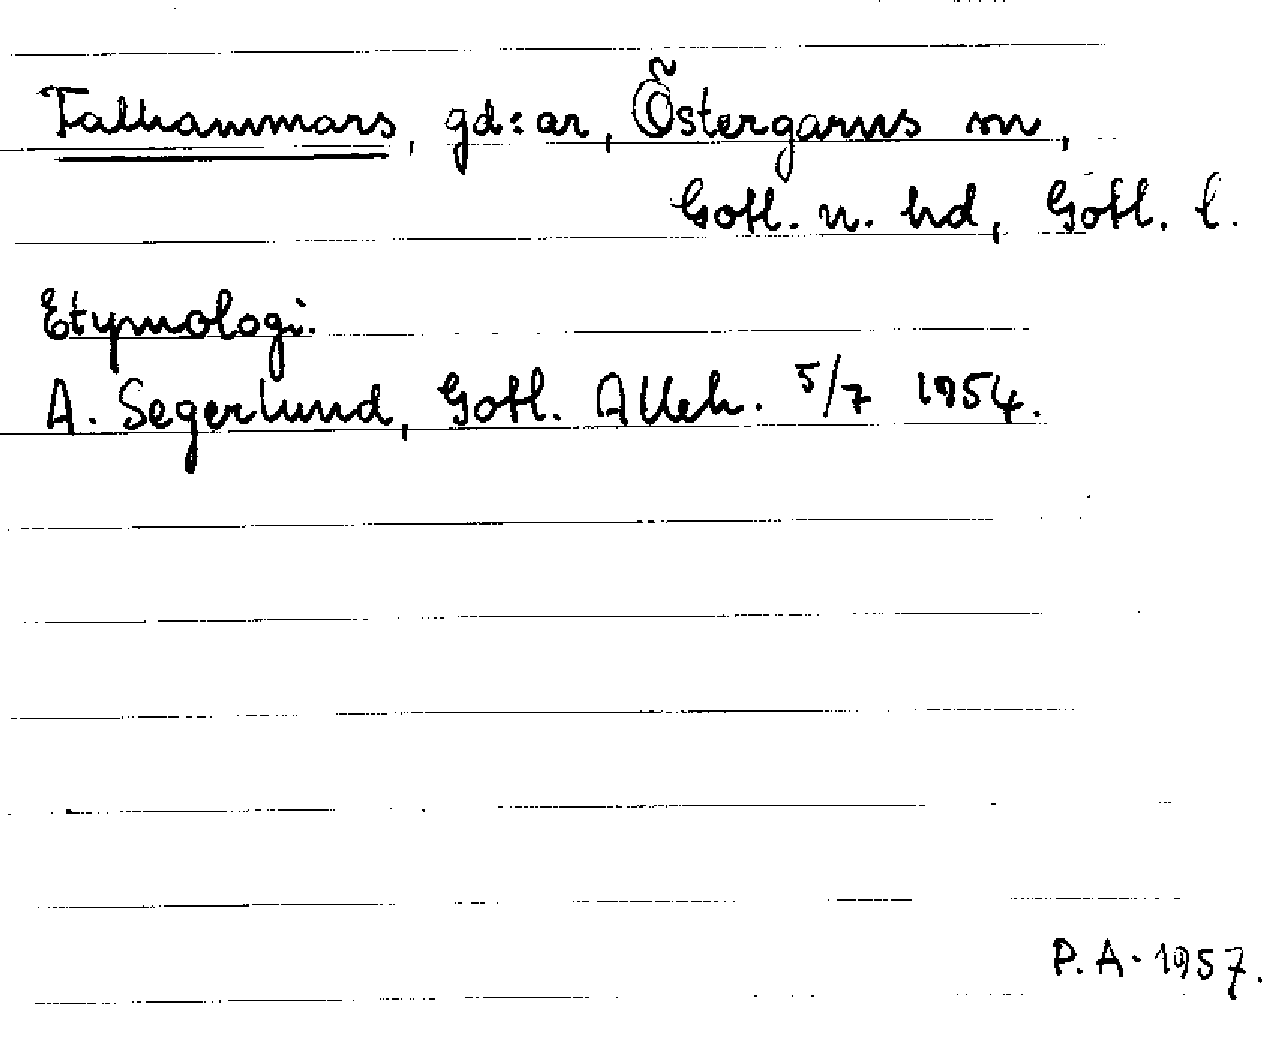 Falhammars, gd:ar, Östergarns sn,
Gotl. n. hd, Gotl. l.
Etymologi.
A. Segerlund, Gotl. Alleh. 5/7 1954.
P. A. 1957.